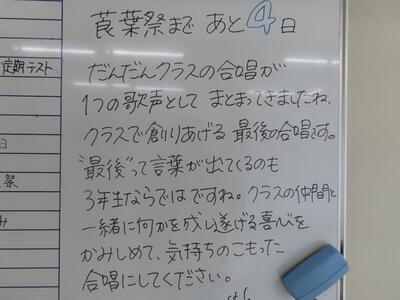 萇葉祭まで あと4日
定期テスト
だんだんクラスの合唱が
1つの歌声として まとまってきましたね.
クラスで創りあげる 最後の合唱です。
"最後"って言葉が出てくるのも
3年生ならではですね。クラスの仲間と
一緒に何かを成し遂げる喜びを
かみしめて、気持ちのこもった
合唱にしてください。
日
祭
み